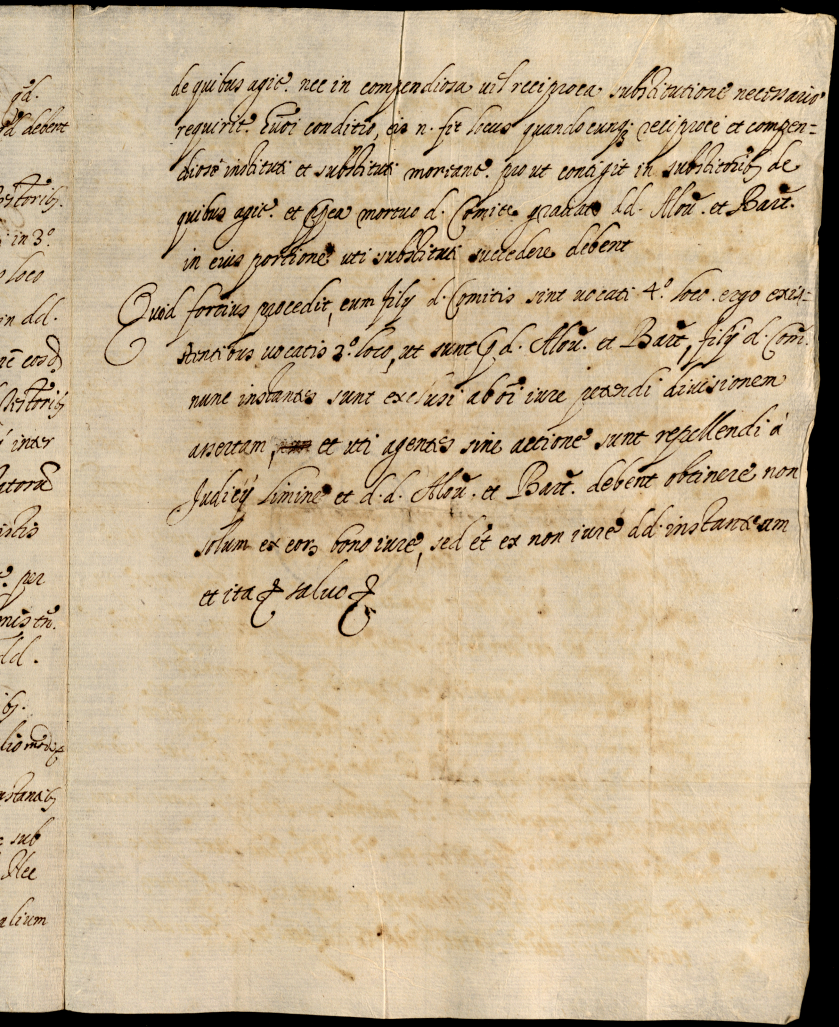 qd.
debent
in 3.º
loco
in dd.
inter
per
dd.
sub
Hec
alium
de quibus agit.r nec in compendiosa vel reciproca substitutione necessario
requirit.r conditio, eis n. fit locus quandocunq; reciprocè et compen=
diosè instituti et substituti moriant.r prout contigit in substitutorib; de
quibus agit.r et mortuo d. Comite gravato dd. Alou. et Bart.
in eius portione uti substituti succedere debent
Quod fortius procedit, cum filij d. Comitis sint uocati 4.º loco. ergo exis=
tentibus uocatis 3.º loco, ut sunt d. Alou. et Bart., filij d. Com.
nunc instantes sunt exclusi ab oi iure petendi diuisionem
assertam, et uti agentes sine actione sunt repellendi à
Judicij limine et d.d. Alou. et Bart. debent obtinere non
solum ex eor. bono iure, sed et ex non iure dd. instantium
et ita salvo